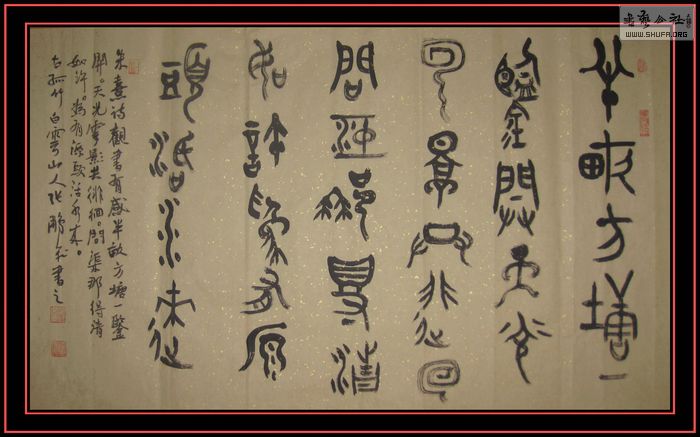 半畝方塘一
鑑開天光
云影共徘徊
問渠那得清
如許為有原
頭活水來
朱熹詩觀書有感半畝方塘一鑒
開。天光雲影共徘徊。問渠那得清
如許。為有源頭活水来。
古孤竹白雲山人张鹏书之
書藝公社
WWW.SHUFA.ORG